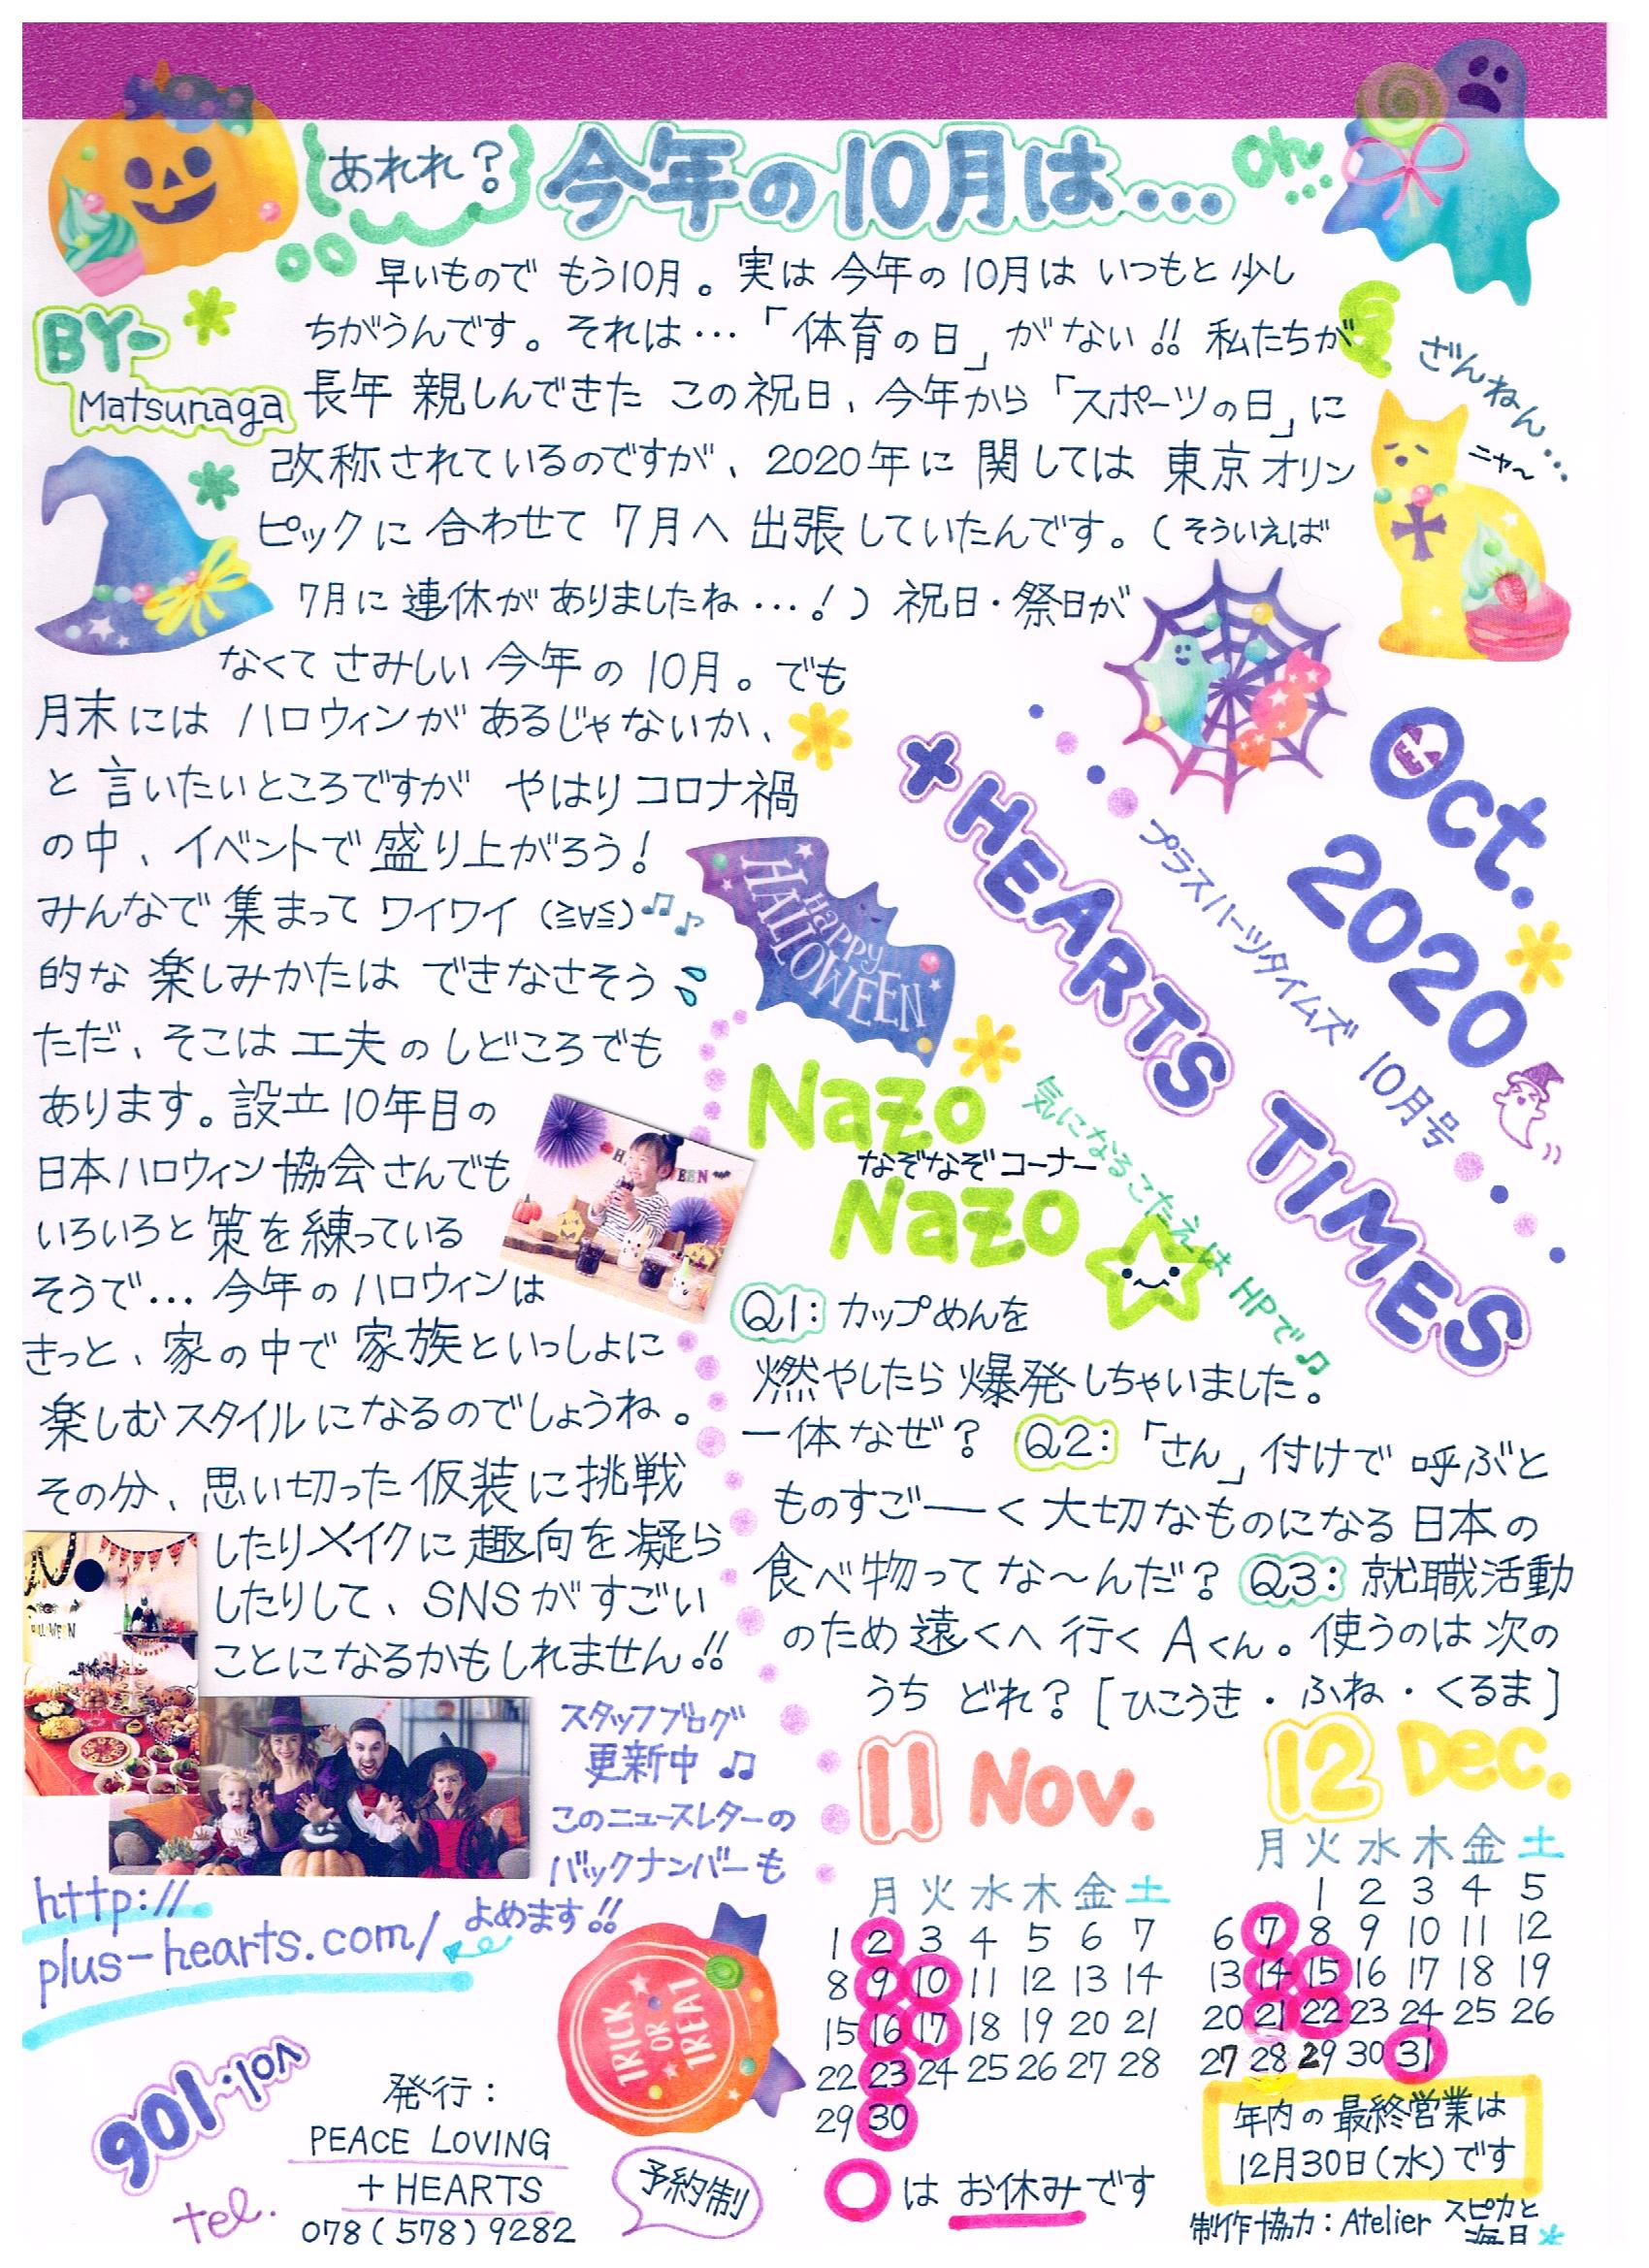 あれれ?
今年の10月は…
Oh…
BY-
Matsunaga
早いもので もう10月。実は 今年の 10月は いつもと 少し
ちがうんです。それは…「体育の日」がない!! 私たちが
長年 親しんできた この祝日、今年から「スポーツの日」に
改称されているのですが、2020年に 関しては 東京オリン
ピックに 合わせて 7月へ 出張していたんです。(そういえば
7月に 連休が ありましたね…!) 祝日・祭日が
なくて さみしい 今年の 10月。でも
月末には ハロウィンが あるじゃないか、
と 言いたいところですが やはり コロナ禍
の中、イベントで 盛り上がろう!
みんなで 集まって ワイワイ (≧∀≦)♫♪
的な 楽しみかたは できなさそう
ただ、そこは 工夫のしどころでも
あります。設立10年目の
日本ハロウィン協会さんでも
いろいろと 策を練っている
そうで… 今年の ハロウィンは
きっと、家の中で 家族といっしょに
楽しむ スタイルになるのでしょうね。
その分、思い切った 仮装に挑戦
したりメイクに 趣向を凝ら
したりして、SNSがすごい
ことになるかもしれません!!
ざんねん…
ニャ〜
Oct.
2020
+HEARTS TIMES
プラスハーツタイムズ 10月号
Happy
HALLOWEEN
Nazo
なぞなぞコーナー
Nazo
気になるこたえは HPで♫
Q1: カップめんを
燃やしたら 爆発しちゃいました。
一体なぜ? Q2:「さん」付けで 呼ぶと
ものすごーく 大切なものになる 日本の
食べ物って な〜んだ? Q3: 就職活動
のため 遠くへ 行く Aくん。使うのは 次の
うち どれ? [ひこうき・ふね・くるま]
スタッフブログ
更新中 ♫
このニュースレターの
バックナンバーも
よめます!!
http://
plus-hearts.com/
TRICK
OR
TREAT
vol.106
発行:
PEACE LOVING
+HEARTS
tel.
078(578)9282
予約制
11 Nov.
月 火 水 木 金 土
1 2 3 4 5 6 7
8 9 10 11 12 13 14
15 16 17 18 19 20 21
22 23 24 25 26 27 28
29 30
は お休みです
12 Dec.
月 火 水 木 金 土
1 2 3 4 5
6 7 8 9 10 11 12
13 14 15 16 17 18 19
20 21 22 23 24 25 26
27 28 29 30 31
年内の最終営業は
12月30日(水)です
制作協力: Atelier スピカと
海月